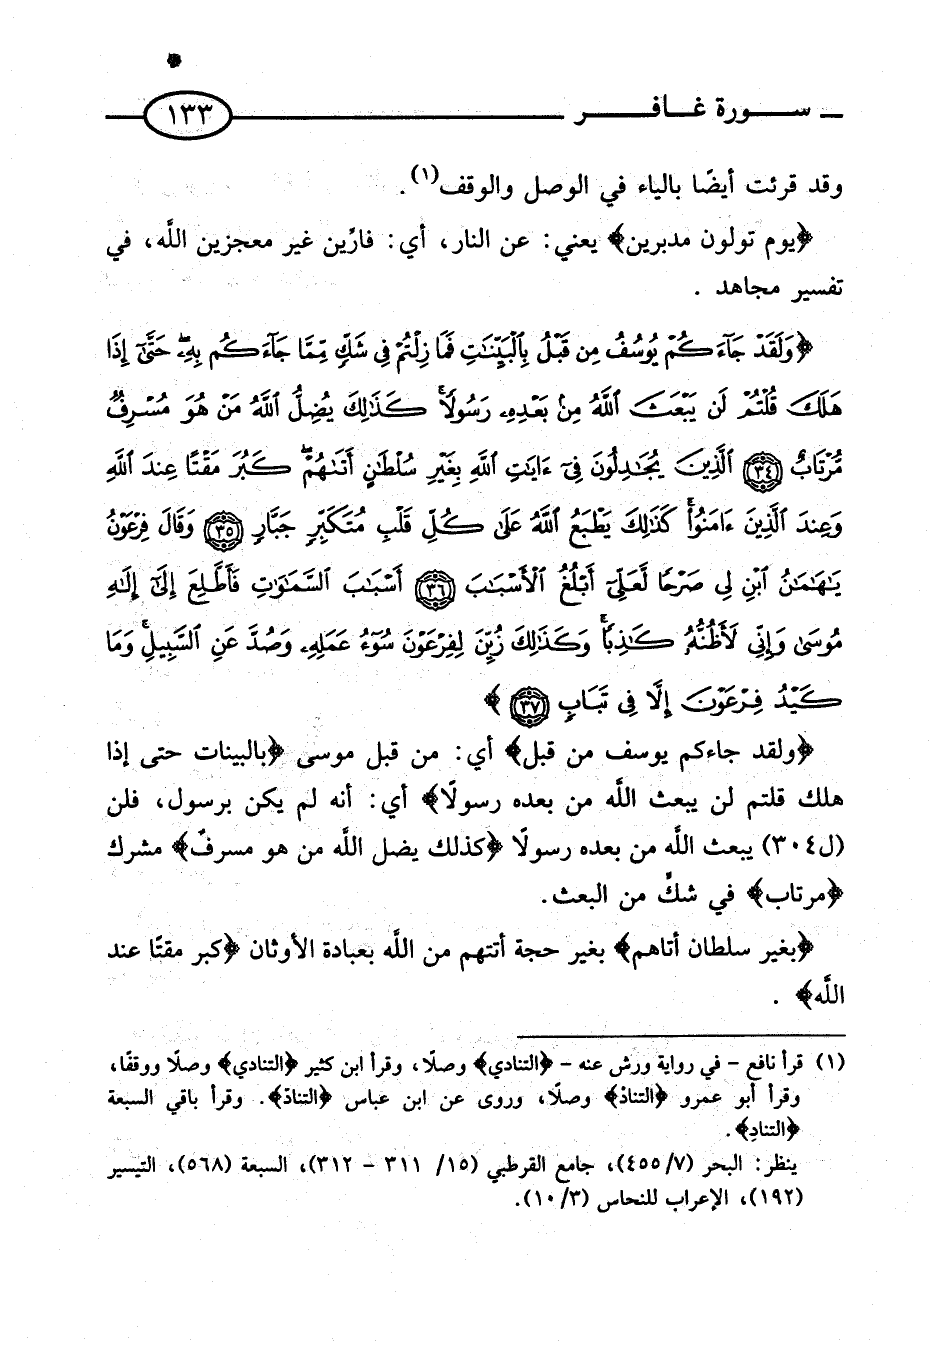 سورة غافر
١٣٣
وقد قرئت أيضًا بالياء في الوصل والوقف(١).
﴿يوم تولون مدبرين﴾ يعني: عن النار، أي: فارِّين غير معجزين اللَّه، في
تفسير مجاهد .
﴿وَلَقَدْ جَآءَكُمْ يُوسُفُ مِن قَبْلُ بِالْبَيِّنَٰتِ فَمَا زِلْتُمْ فِي شَكٍّ مِّمَّا جَآءَكُم بِهِۦ حَتَّىٰٓ إِذَا
هَلَكَ قُلْتُمْ لَن يَبْعَثَ ٱللَّهُ مِنۢ بَعْدِهِۦ رَسُولًا ۚ كَذَٰلِكَ يُضِلُّ ٱللَّهُ مَنْ هُوَ مُسْرِفٌ
مُّرْتَابٌ ٣٤ ٱلَّذِينَ يُجَٰدِلُونَ فِىٓ ءَايَٰتِ ٱللَّهِ بِغَيْرِ سُلْطَٰنٍ أَتَىٰهُمْ ۖ كَبُرَ مَقْتًا عِندَ ٱللَّهِ
وَعِندَ ٱلَّذِينَ ءَامَنُوا۟ ۚ كَذَٰلِكَ يَطْبَعُ ٱللَّهُ عَلَىٰ كُلِّ قَلْبِ مُتَكَبِّرٍ جَبَّارٍ ٣٥ وَقَالَ فِرْعَوْنُ
يَٰهَٰمَٰنُ ٱبْنِ لِى صَرْحًا لَّعَلِّىٓ أَبْلُغُ ٱلْأَسْبَٰبَ ٣٦ أَسْبَٰبَ ٱلسَّمَٰوَٰتِ فَأَطَّلِعَ إِلَىٰٓ إِلَٰهِ
مُوسَىٰ وَإِنِّى لَأَظُنُّهُۥ كَٰذِبًا ۚ وَكَذَٰلِكَ زُيِّنَ لِفِرْعَوْنَ سُوٓءُ عَمَلِهِۦ وَصُدَّ عَنِ ٱلسَّبِيلِ ۚ وَمَا
كَيْدُ فِرْعَوْنَ إِلَّا فِى تَبَابٍ ٣٧ ﴾
﴿ولقد جاءكم يوسف من قبل﴾ أي: من قبل موسى ﴿بالبينات حتى إذا
هلك قلتم لن يبعث اللَّه من بعده رسولًا﴾ أي: أنه لم يكن برسول، فلن
(ل٣٠٤) يبعث اللَّه من بعده رسولًا ﴿كذلك يضل اللَّه من هو مسرفٌ﴾ مشرك
﴿مرتاب﴾ في شكٍّ من البعث.
﴿بغير سلطان أتاهم﴾ بغير حجة أتتهم من اللَّه بعبادة الأوثان ﴿كبر مقتًا عند
اللَّه﴾ .
(١) قرأ نافع - في رواية ورش عنه - ﴿التنادي﴾ وصلًا، وقرأ ابن كثير ﴿التنادي﴾ وصلًا ووقفًا،
وقرأ أبو عمرو ﴿التنادْ﴾ وصلًا، وروى عن ابن عباس ﴿التنادّ﴾. وقرأ باقي السبعة
﴿التنادِ﴾.
ينظر: البحر (٤٥٥/٧)، جامع القرطبي (١٥/ ٣١١ - ٣١٢)، السبعة (٥٦٨)، التيسير
(١٩٢)، الإعراب للنحاس (١٠/٣).